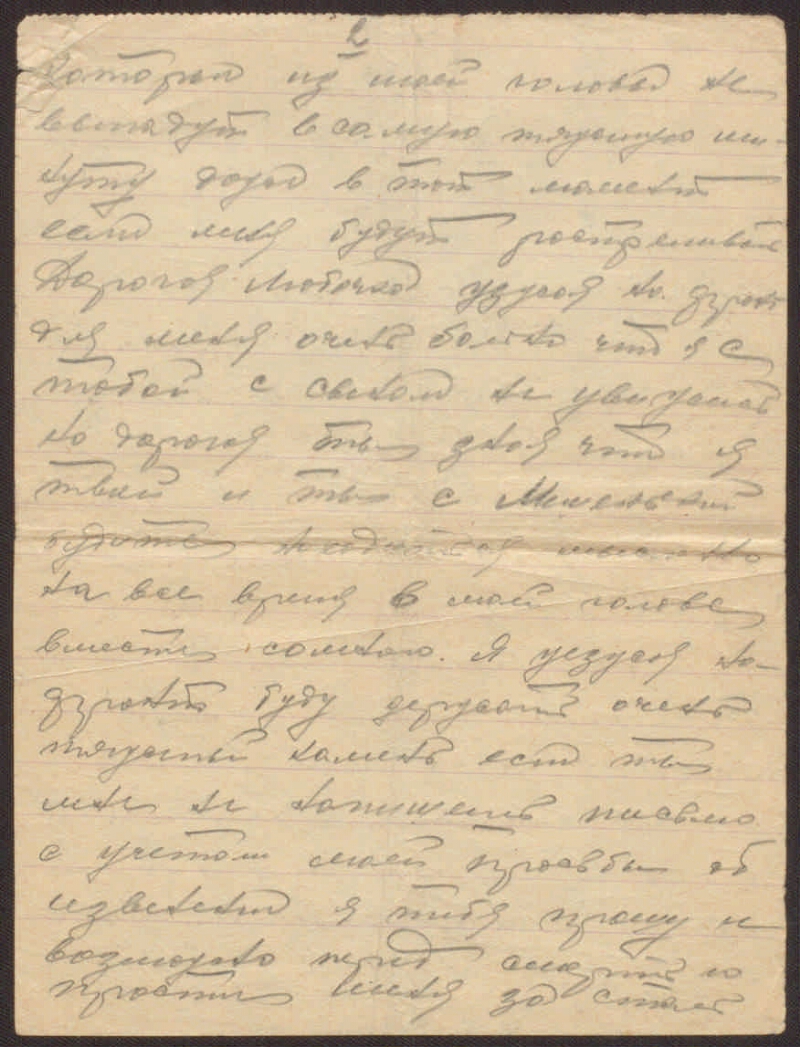 2
которые из моей головы не
выпадут в самую тяжелую ми-
нуту даже в тот момент
если меня будут расстреливать
Дорогая Любочка уезжая на фронт
для меня очень больно что я с
тобой с свиком не увиделся
но дорогая ты зная что я
твой и ты с Миленькой
будете находится мысленно
на все время в моей голове
вместе со мною. Я уезжая на
фронт буду держать очень
тяжелый камень если ты
мне не напишешь письмо
с учетом моей просьбы об
извенении я тебя прошу и
возможно перед смертью
прости меня за столь